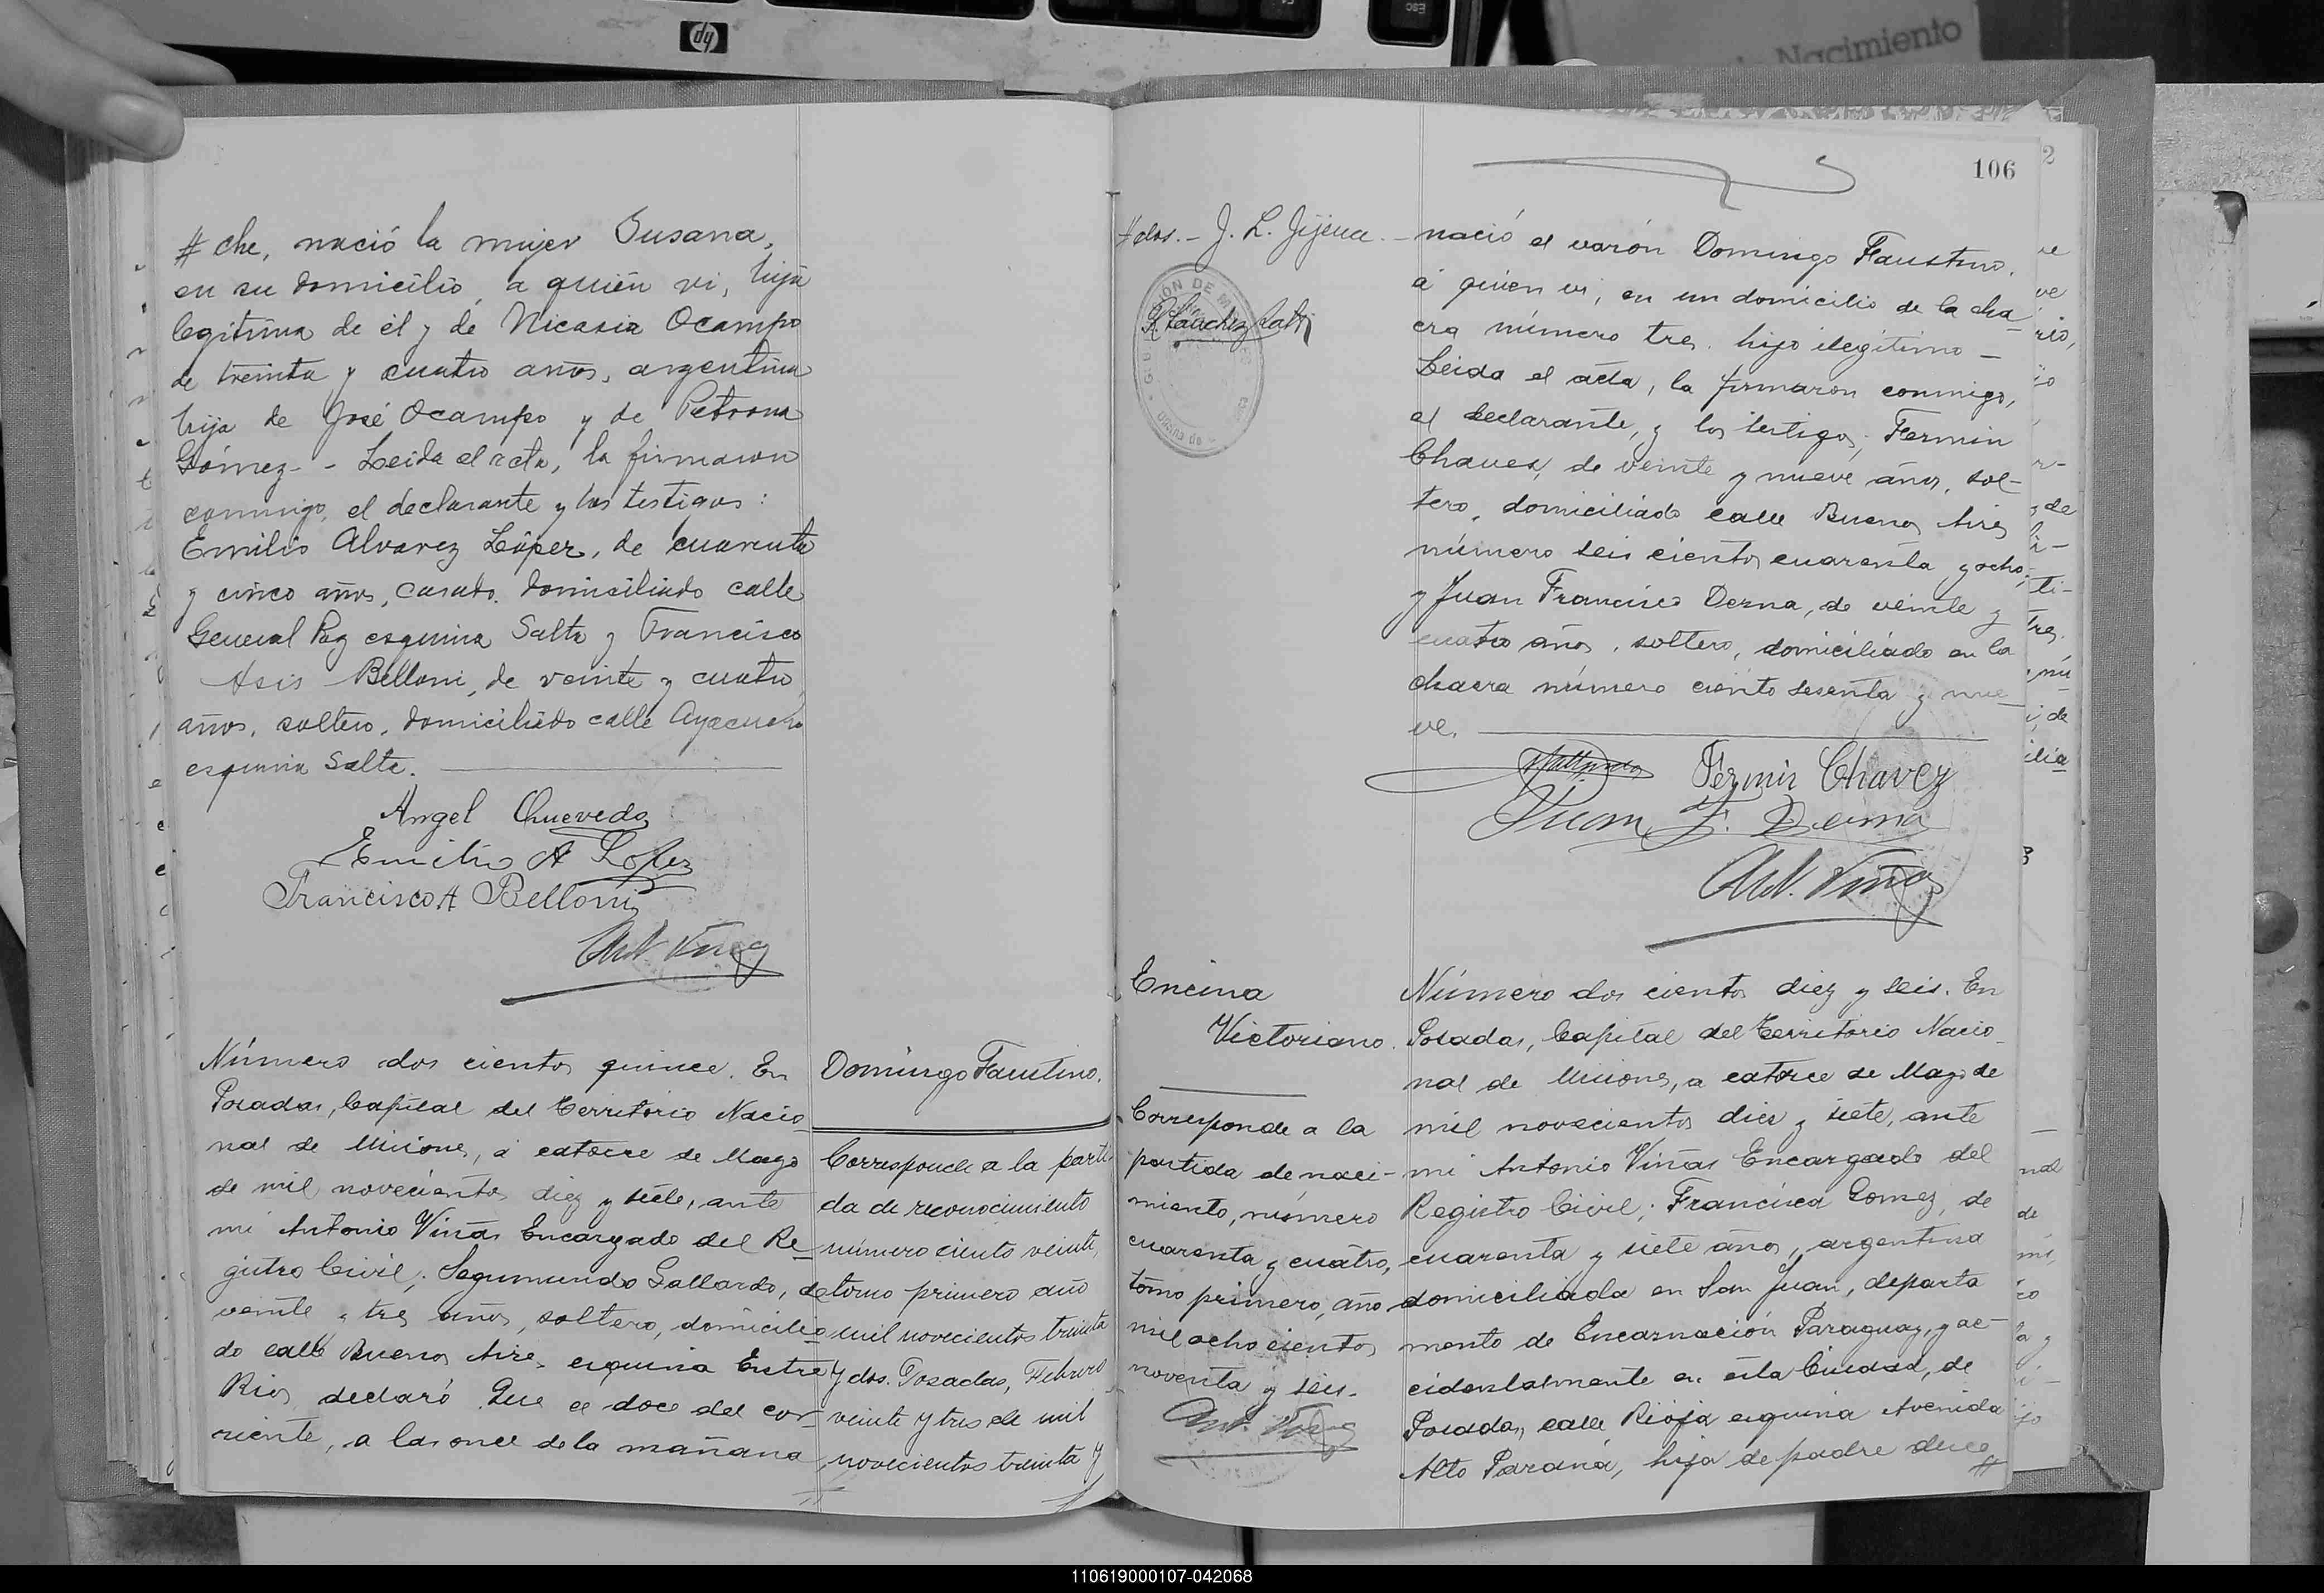 Nacimiento
hp
# che, nació la mujer Susana,
en su domicilio, a quién vi, hija
legítima de él y de Nicasia Ocampo
de treinta y cuatro años, argentina
hija de José Ocampo y de Petrona
Gómez - - Leida el acta, la firmaron
conmigo, el declarante y los testigos:
Emilio Alvarez López, de cuarenta
y cinco años, casado, domiciliado calle
General Paz esquina Salta y Francisco
Asis Belloni, de veinte y cuatro
años, soltero, domiciliado calle Ayacucho
esquina Salta.
Angel Quevedo
Emilio A Lopez
Francisco A Belloni
Ant. Viñas
Número dos cientos quince. En
Posadas, Capital del Territorio Nacio
nal de Misiones, á catorce de Mayo
de mil novecientos diez y siete, ante
mi Antonio Viñas Encargado del Re
gistro Civil; Segumundo Gallardo, de
veinte y tres años, soltero, domicilia
do calle Buenos Aires esquina Entre
Rios, declaró Que el doce del cor
riente, a las once de la mañana
Domingo Faustino.
Corresponde a la parti
da de reconocimiento
número ciento veinte,
tomo primero año
mil novecientos treinta
y dos. Posadas, Febrero
veinte y tres de mil
novecientos treinta y
106
# dos. - J. L. Jijena. -
R. Sánchez Ratti
nació el varón Domingo Faustino,
á quien vi, en un domicilio de la cha
cra número tres. hijo ilegitimo -
Leida el acta, la firmaron conmigo,
el declarante, y los testigos; Fermin
Chaves, de veinte y nueve años, sol-
tero, domiciliado calle Buenos Aires
número seis cientos cuarenta y ocho,
y Juan Francisco Dezna, de veinte y
cuatro años, soltero, domiciliado en la
chacra número ciento sesenta y nue
ve.
Fermin Chavez
Juan F. Dezna
Ant. Viñas
Encina
Victoriano.
Corresponde a la
partida de naci-
miento, número
cuarenta y cuatro,
tomo primero, año
mil ocho cientos
noventa y seis.
Ant. Viñas
Número dos cientos diez y seis. En
Posadas, Capital del Territorio Nacio
nal de Misiones, a catorce de Mayo de
mil novecientos diez y siete, ante
mi Antonio Viñas Encargado del
Registro Civil; Francisca Gomez, de
cuarenta y siete años, argentina
domiciliada en San Juan, departa
mento de Encarnación Paraguay, y ac-
cidentalmente en esta Ciudad, de
Posadas, calle Rioja esquina Avenida
Alto Paraná, hija de padre desco
#
110619000107-042068